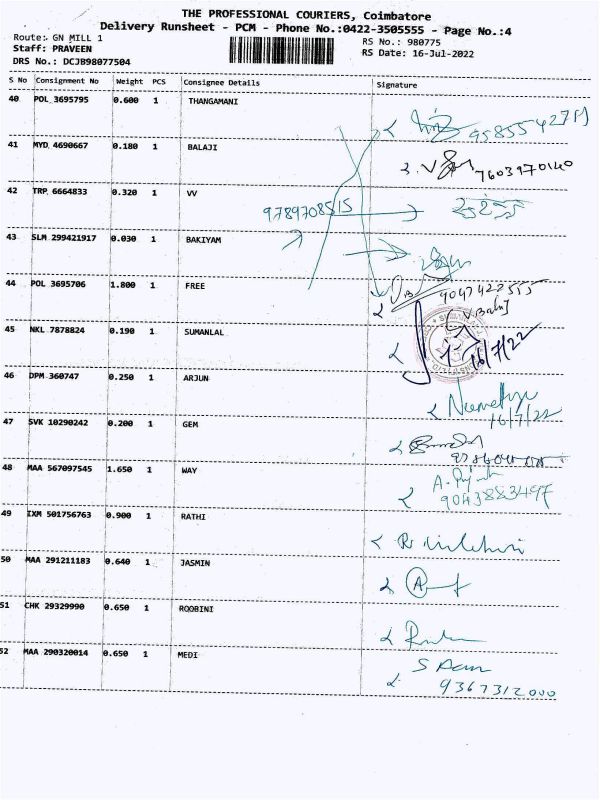 THE PROFESSIONAL COURIERS, Coimbatore
Delivery Runsheet - PCM - Phone No.:0422-3505555 - Page No.:4
Route: GN MILL 1
RS No.: 980775
Staff: PRAVEEN
RS Date: 16-Jul-2022
DRS No.: DCJB98077504
S No Consignment No Weight PCS Consignee Details Signature
40 POL 3695795 0.600 1 THANGAMANI
41 MYD 4690667 0.180 1 BALAJI
7603970140
42 TRP 6664833 0.320 1 VV
9789708515
43 SLM 299421917 0.030 1 BAKIYAM
44 POL 3695706 1.800 1 FREE
V.Balaj
45 NKL 7878824 0.190 1 SUMANLAL
16/7/22
46 DPM 360747 0.250 1 ARJUN
16/7/22
47 SVK 10290242 0.200 1 GEM
48 MAA 567097545 1.650 1 WAY
9043883497
49 IXM 501756763 0.900 1 RATHI
50 MAA 291211183 0.640 1 JASMIN
51 CHK 29329990 0.650 1 ROOBINI
52 MAA 290320014 0.650 1 MEDI
9367312000